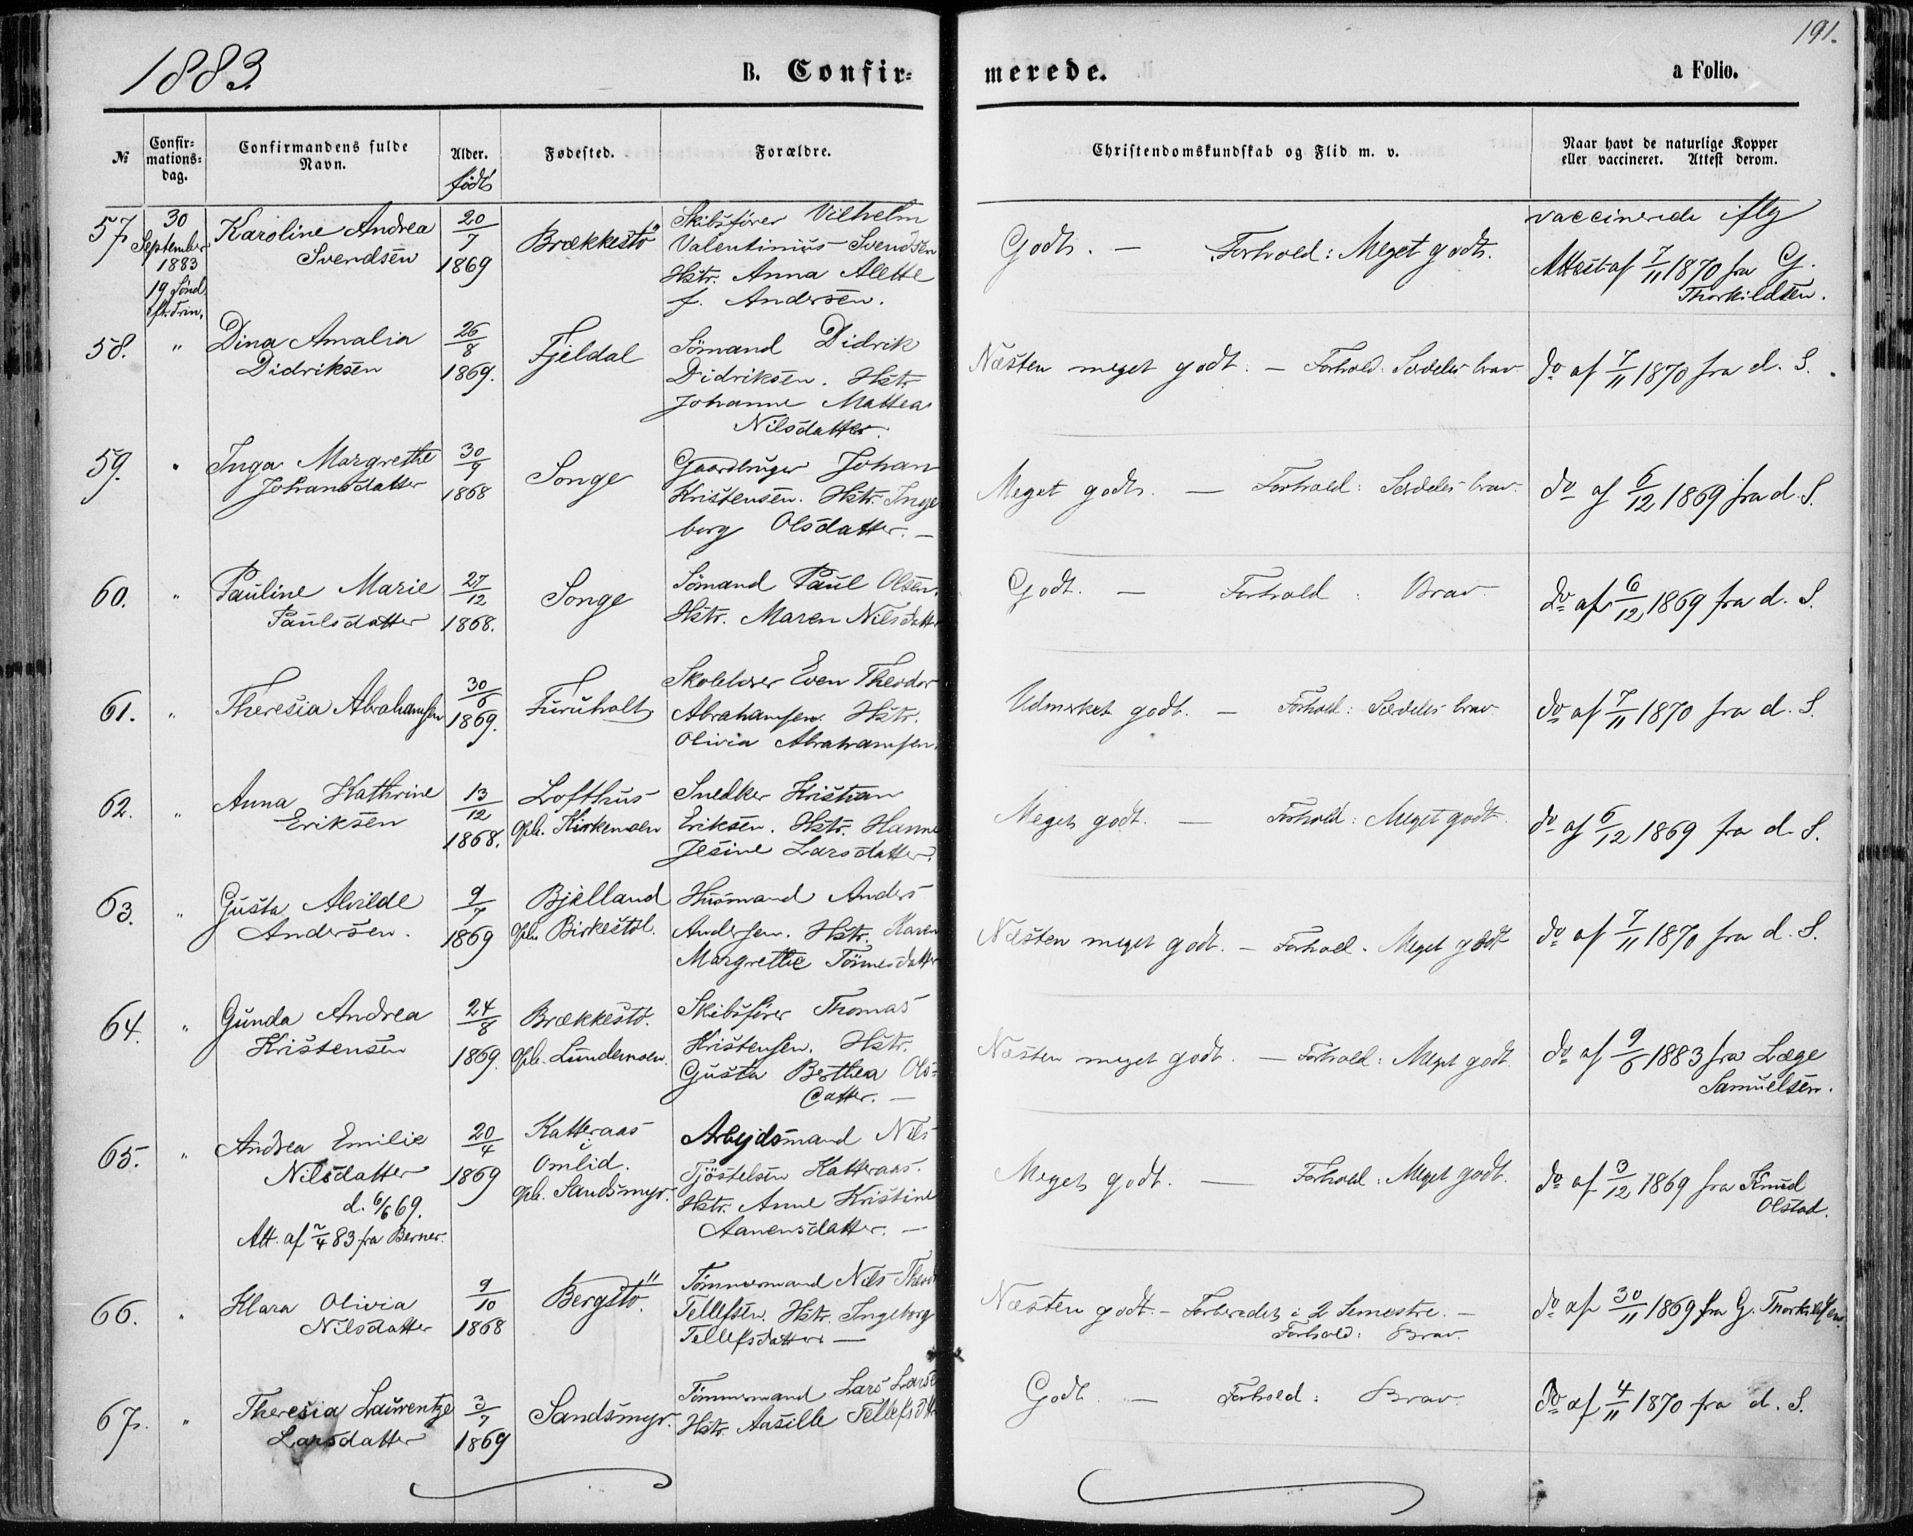 1883.
B. Confir-
merede.
a Folio.
191.
№
Confir-
mations-
dag.
Confirmandens fulde
Navn.
Alder.
født
Fødested.
Forældre.
Christendomskundskab og Flid m. v.
Naar havt de naturlige Kopper
eller vaccineret. Attest derom.
57.
30
September
1883
19 Sønd.
eft. Trin.
Karoline Andrea
Svendsen
20/7
1869
Brækkestö
Skibsfører Vilhelm
Valentinius Svendsen
Hstr. Anna Alette
f. Andersen.
Godt. — Forhold: Meget godt.
vaccinerede iflg
Attest af 7/11 1870 fra G.
Thorkildsen.
58.
"
Dina Amalia
Didriksen
26/8
1869.
Fjeldal
Sömand Didrik
Didriksen. Hstr.
Johanne Mathea
Nilsdatter.
Næsten meget godt. — Forhold: Særdeles brav
do af 7/11 1870 fra d. S.
59.
"
Inga Margrethe
Johansdatter
30/9
1868
Songe
Gaardbruger Johan
Kristensen. Hstr. Inge
borg Olsdatter. —
Meget godt. — Forhold: Særdeles brav.
do af 6/12 1869 fra d. S.
60.
"
Pauline Marie
Paulsdatter
27/12
1868.
Songe
Sömand Paul Olsen.
Hstr. Maren Nilsdatter
Godt. — Forhold: Brav.
do af 6/12 1869 fra d. S.
61.
"
Theresia Abrahamsen
30/6
1869.
Furuholt
Skolelærer Even Theodor
Abrahamsen. Hstr.
Olivia Abrahamsen.
Udmerket godt. — Forhold: Særdeles brav.
do af 7/11 1870 fra d. S.
62.
"
Anna Kathrine
Eriksen
13/12
1868.
Lofthus
Oph. Kirkemoen
Snedker Kristian
Eriksen. Hstr. Hanne
Jesine Larsdatter.
Meget godt. — Forhold: Meget godt.
do af 6/12 1869 fra d. S.
63.
"
Gusta Alvilde
Andersen.
9/7
1869
Bjelland
Oph. Birkestöl.
Husmand Anders
Andersen. Hstr. Karen
Margrethe Tönnesdatter
Næsten meget godt. — Forhold. Meget godt
do af 7/11 1870 fra d. S.
64.
"
Gunda Andrea
Kristensen
24/8
1869.
Brækkestö.
Oph. Lundemoen.
Skibsfører Thomas
Kristensen. Hstr.
Gusta Berthea Ols-
datter. —
Næsten meget godt. — Forhold: Meget godt.
do af 9/6 1883 fra Læge
Samuelsen.
65.
"
Andrea Emilie
Nilsdatter
d. 6/6 69.
Att. af 2/4 83 fra Berner.
20/4
1869
Katteraas
i
Omlid.
Oph. Sandsmyr.
Arbejdsmand Nils
Tjöstelsen Katteraas.
Hstr. Anne Kristine
Aanensdatter. —
Meget godt. — Forhold: Meget godt.
do af 3/12 1869 fra Knud
Olstad.
66.
"
Klara Olivia
Nilsdatter
9/10
1868
Bergstö.
Tömmermand Nils Theod
Tellefsen. Hstr. Ingeborg
Tellefsdatter —
Næsten godt. — Forberedet i 2 Semestre. —
Forhold: Brav.
do af 30/11 1869 fra G. Thorkildsen.
67.
"
Theresia Laurentze
Larsdatter
3/7
1869
Sandsmyr.
Tömmermand Lars Larse
Hstr. Aasille Tellefsdtr
Godt. — Forhold: Brav.
do af 4/11 1870 fra d. S.